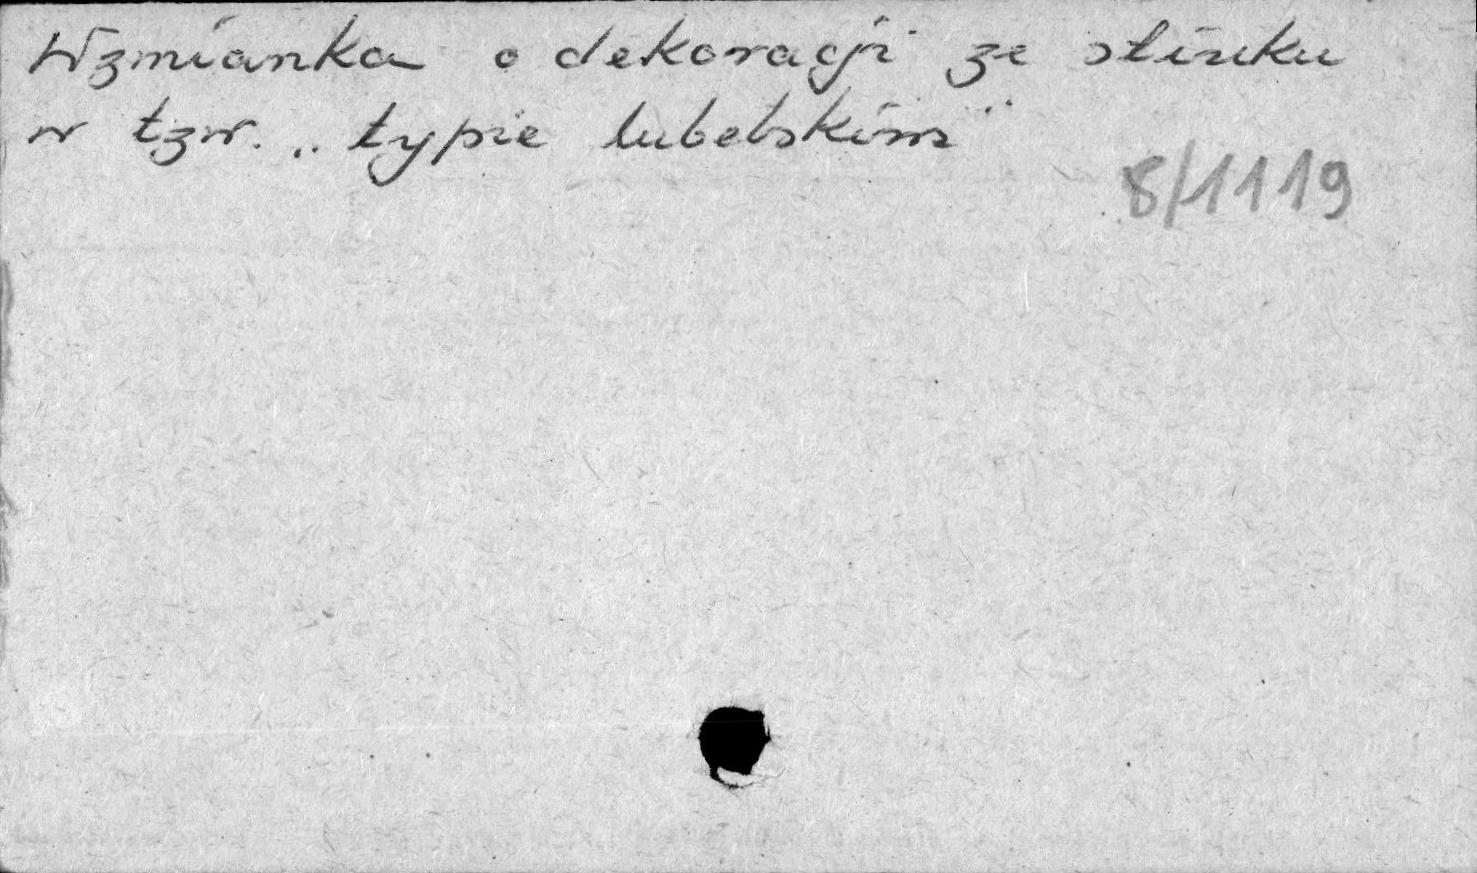 Wzmianka o dekoracji ze stiuku
w tzw. „typie lubelskim"
8/1119